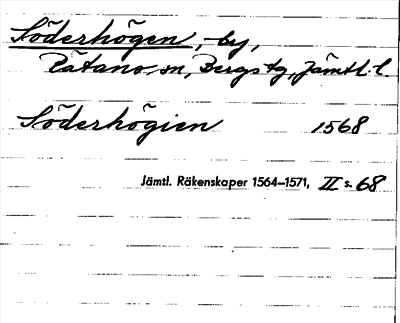 Söderhögen, by,
Rätans sn, Bergs tg, Jämtl. l.
Söderhögien 1568
Jämtl. Räkenskaper 1564–1571, II s. 68